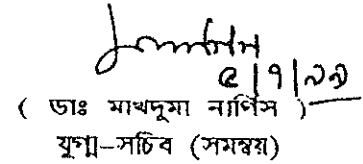 ৫|৭|৯৯
( ডাঃ মাখদুমা নার্গিস )
যুগ্ম-সচিব (সমন্বয়)